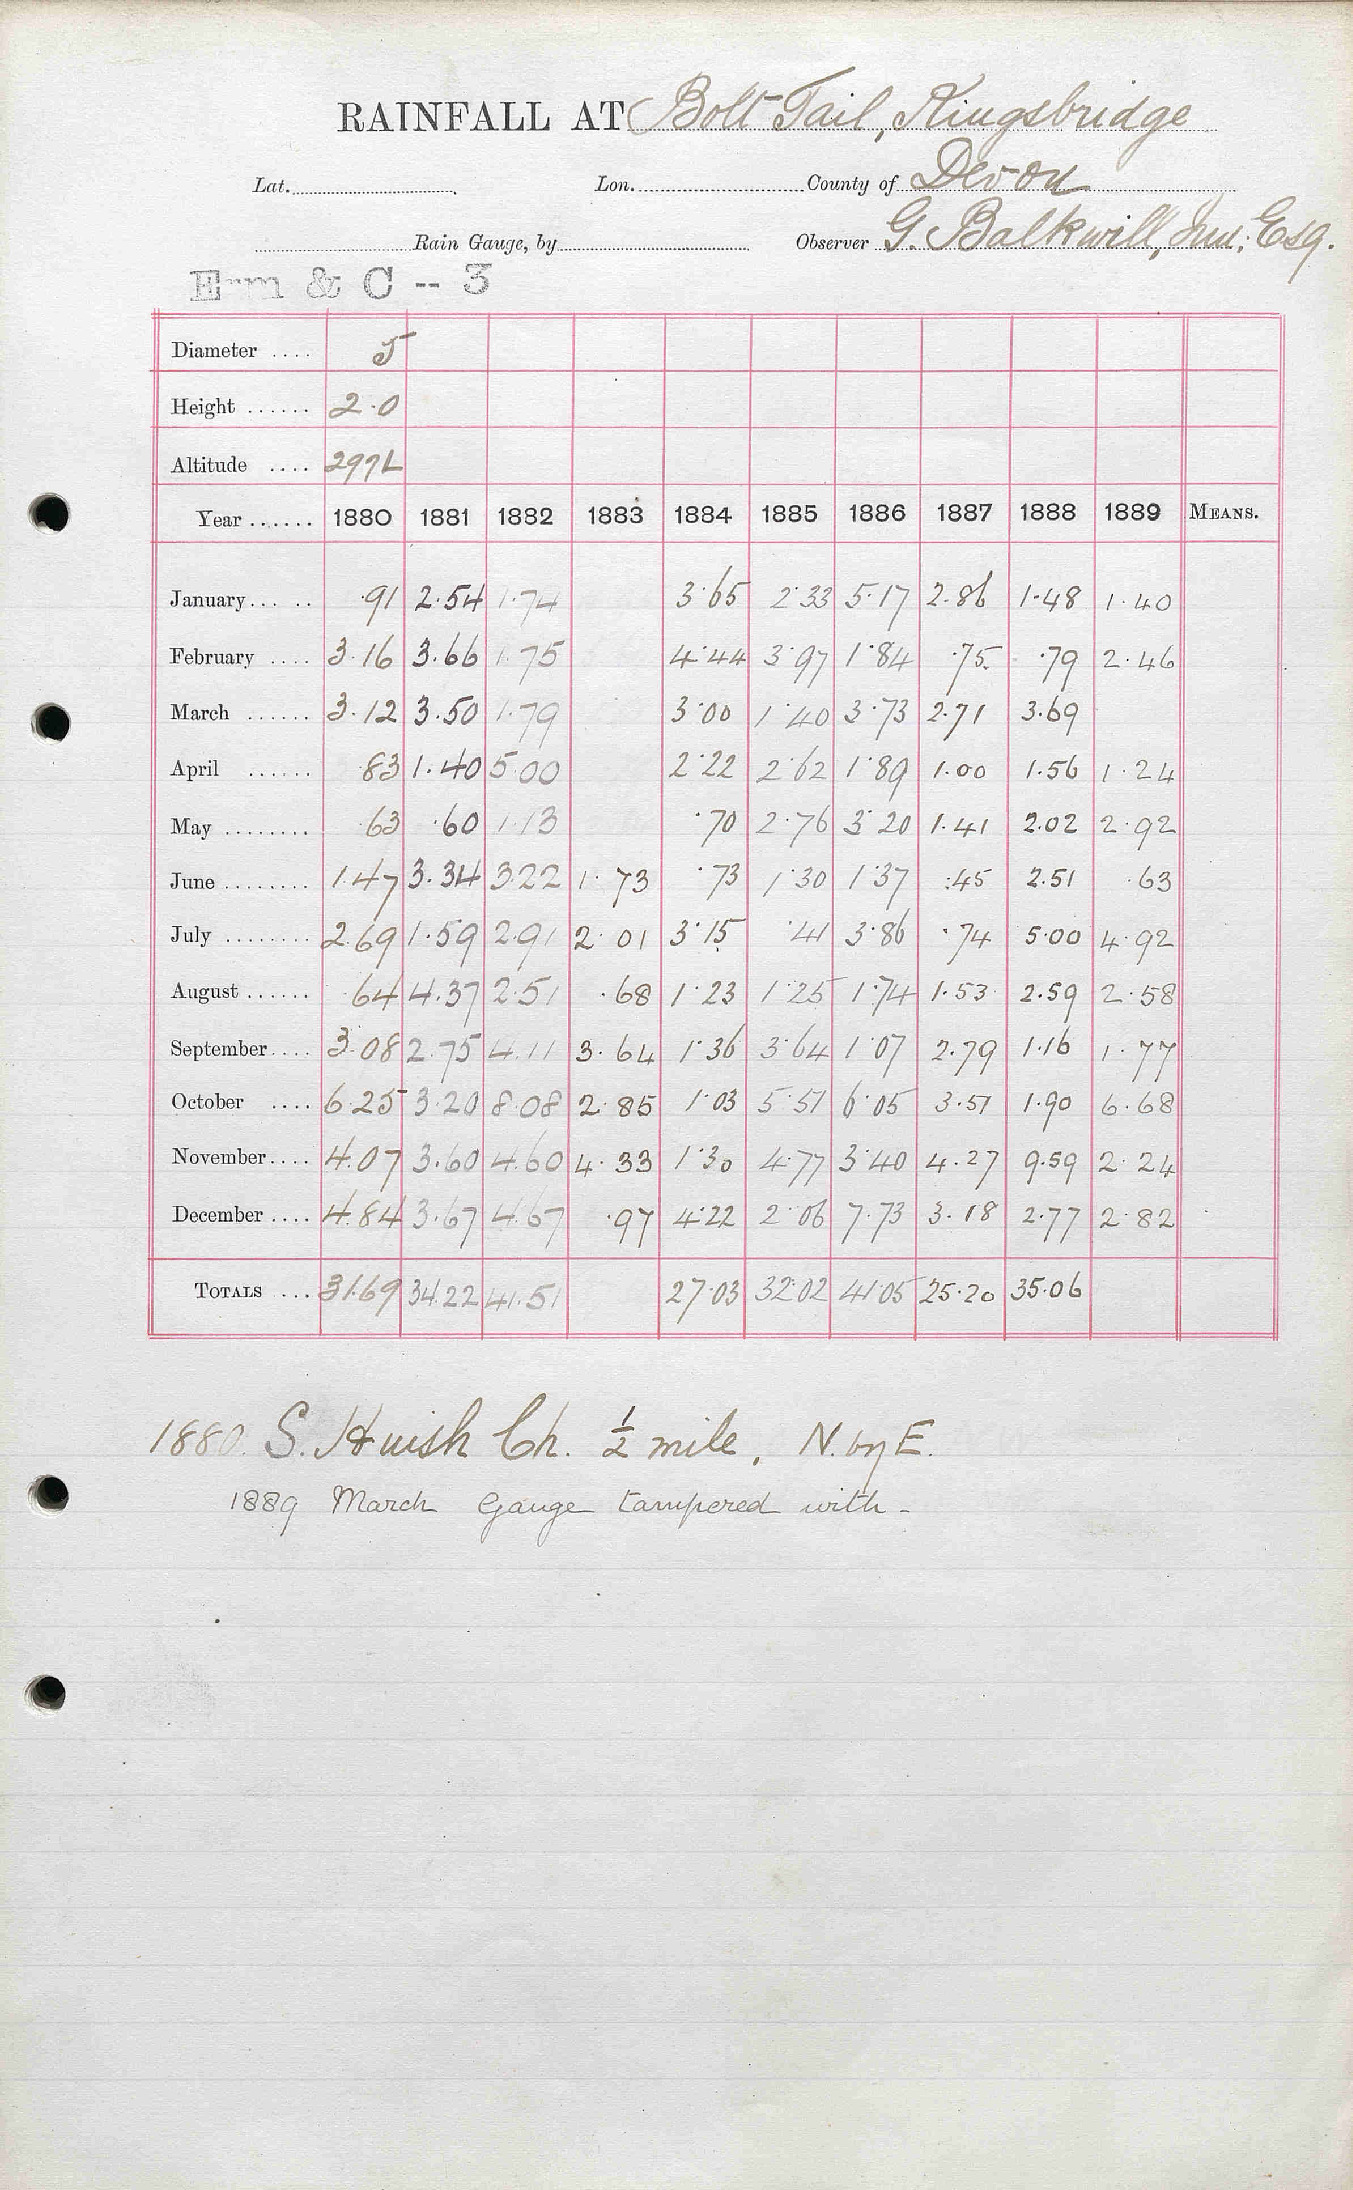 RAINFALL AT Bolt Tail, Kingsbridge
Lat. Lon. County of Devon
Rain Gauge, by Observer G. Balkwill, Jun. Esq.
Erm & C -- 3
Diameter .... 5
Height ...... 2.0
Altitude .... 297L
Year ...... 1880 1881 1882 1883 1884 1885 1886 1887 1888 1889 MEANS.
January... .. .91 2.54 1.74 3.65 2.33 5.17 2.86 1.48 1.40
February .... 3.16 3.66 1.75 4.44 3.97 1.84 .75 .79 2.46
March ...... 3.12 3.50 1.79 3.00 1.40 3.73 2.71 3.69
April ...... .83 1.40 5.00 2.22 2.62 1.89 1.00 1.56 1.24
May ........ .63 .60 1.13 .70 2.76 3.20 1.41 2.02 2.92
June ........ 1.47 3.34 3.22 1.73 .73 1.30 1.37 .45 2.51 .63
July ........ 2.69 1.59 2.91 2.01 3.15 .41 3.86 .74 5.00 4.92
August ...... .64 4.37 2.51 .68 1.23 1.25 1.74 1.53 2.59 2.58
September.... 3.08 2.75 4.11 3.64 1.36 3.64 1.07 2.79 1.16 1.77
October .... 6.25 3.20 8.08 2.85 1.03 5.51 6.05 3.51 1.90 6.68
November.... 4.07 3.60 4.60 4.33 1.30 4.77 3.40 4.27 9.59 2.24
December .... 4.84 3.67 4.67 .97 4.22 2.06 7.73 3.18 2.77 2.82
TOTALS ... 31.69 34.22 41.51 27.03 32.02 41.05 25.20 35.06
1880. S. Huish Ch. ½ mile, N. by E.
1889 March Gauge tampered with -